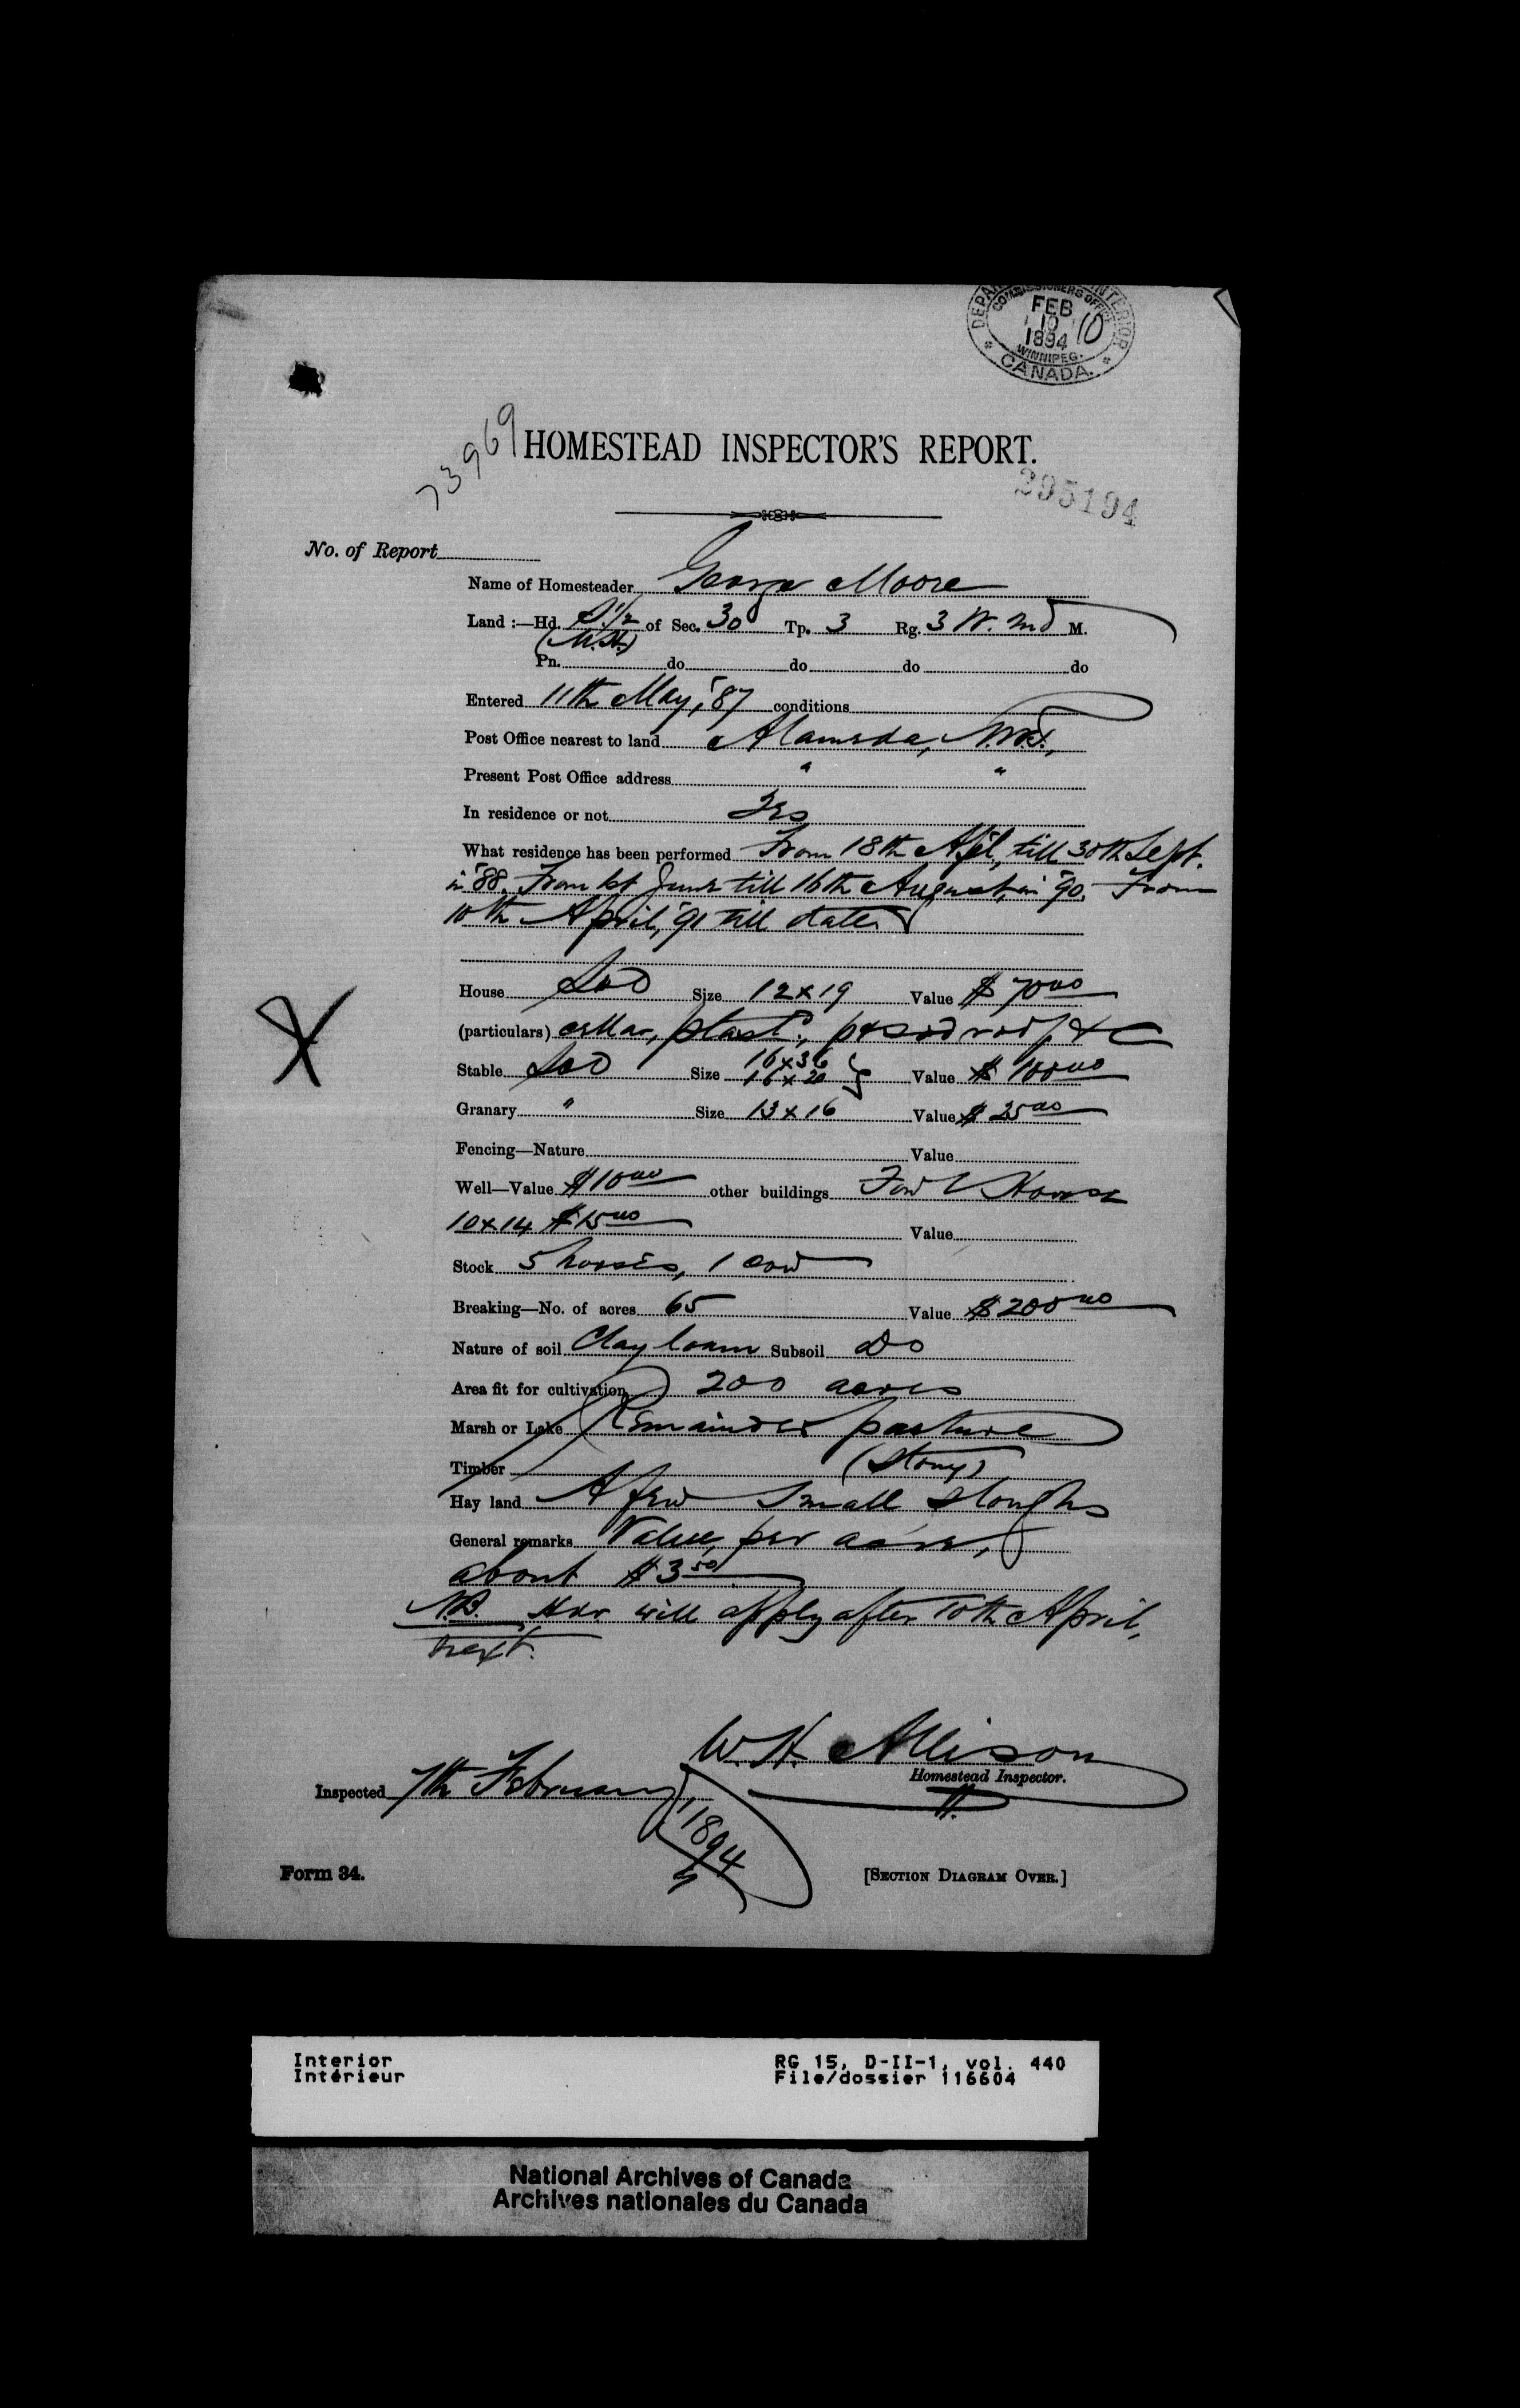 DEPARTMENT OF THE INTERIOR
COMMISSIONERS OFFICE
FEB
10 10
1894
WINNIPEG.
* CANADA. *
73969
HOMESTEAD INSPECTOR'S REPORT.
295194
No. of Report
Name of Homesteader George Moore
Land :—Hd. S. 1/2 of Sec. 30 Tp. 3 Rg. 3 W. 2nd M.
Pn. do do do do
Entered 11th May, '87 conditions
Post Office nearest to land Alameda, N.W.T.,
Present Post Office address " "
In residence or not Yes
What residence has been performed From 18th Apl., till 30th Sept.
in '88. From 1st June till 16th August, in '90. From
10th April, '91 till date
House Sod Size 12x19 Value $70.00
(particulars) cellar, plast'd, p & sod roof, &c
Stable Sod Size 16x36 16x20 } Value $100.00
Granary " Size 13x16 Value $25.00
Fencing—Nature Value
Well—Value $10.00 other buildings Fowl House
10x14 $15.00 Value
Stock 5 horses, 1 cow
Breaking—No. of acres 65 Value $200.00
Nature of soil Clay loam Subsoil Do
Area fit for cultivation 200 acres
Marsh or Lake Remainder pasture
Timber (Stony)
Hay land A few small sloughs
General remarks Value, per acre,
about $3.50
N.B. Hdr will apply after 10th April,
next.
W. H. Allison
Homestead Inspector.
Inspected 7th February, 1894
Form 34.
[SECTION DIAGRAM OVER.]
Interior RG 15, D-II-1, vol. 440
Intérieur File/dossier 116604
National Archives of Canada
Archives nationales du Canada